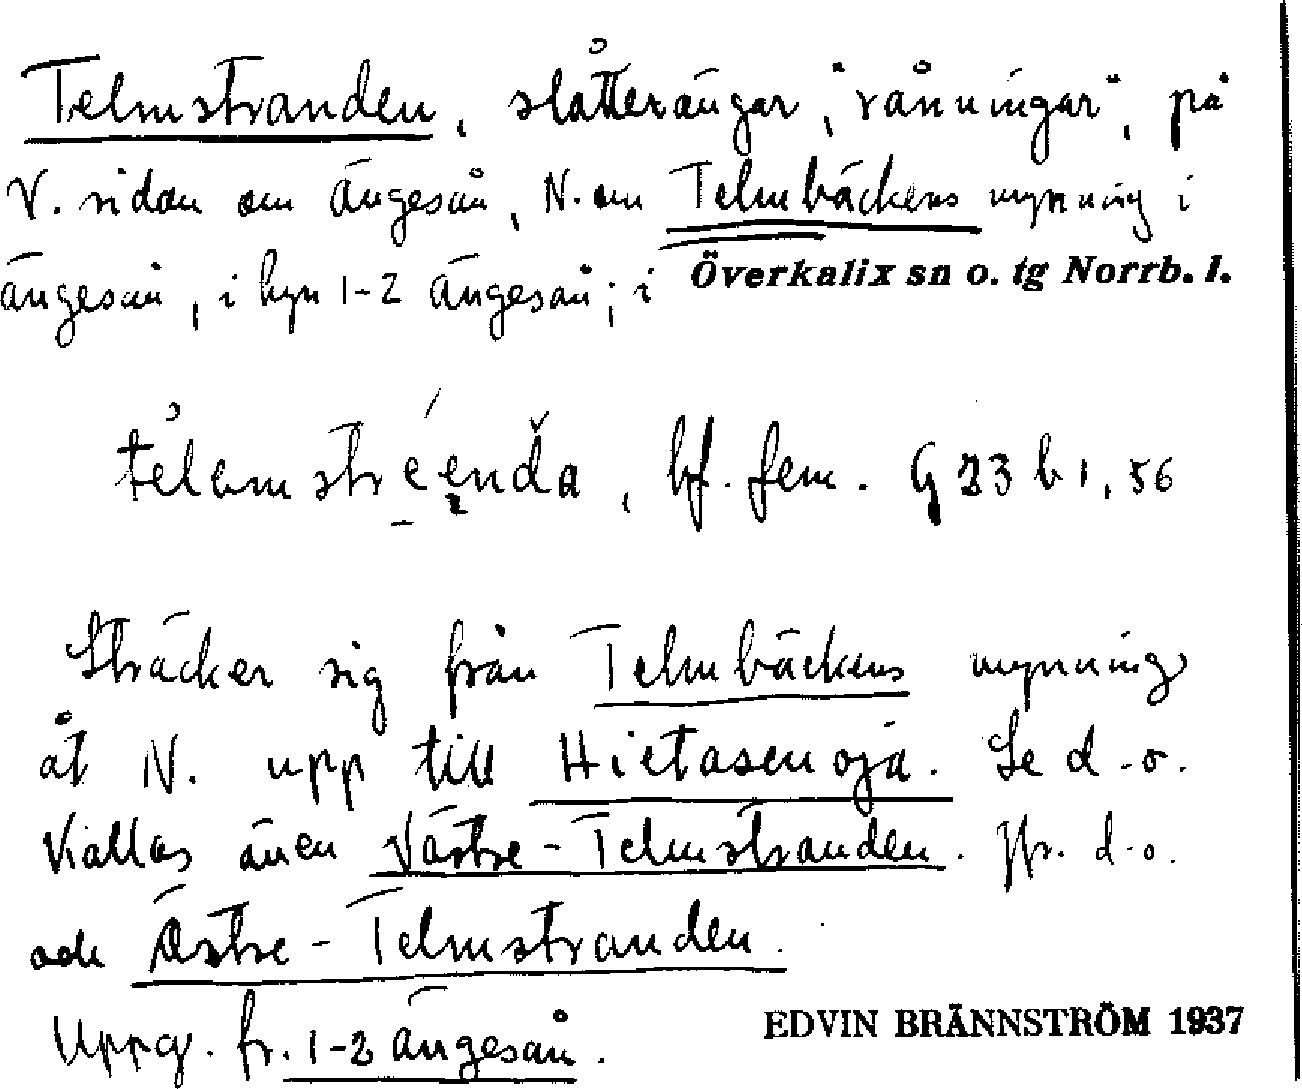 Telmstranden, slåtterängar, "rånningar", på
V. sidan om Ängesån, N. om Telmbäckens mynning i
Ängesån, i byn 1-2 Ängesån; i Överkalix sn o. tg Norrb. l.
bf. fem. G 23 b 1, 56
Sträcker sig från Telmbäckens mynning
åt N. upp till Hietasenoja. Se d.o.
Kallas även Västre-Telmstranden. Jfr. d.o.
och Östre-Telmstranden.
Uppg. fr. 1-2 Ängesån.
EDVIN BRÄNNSTRÖM 1937